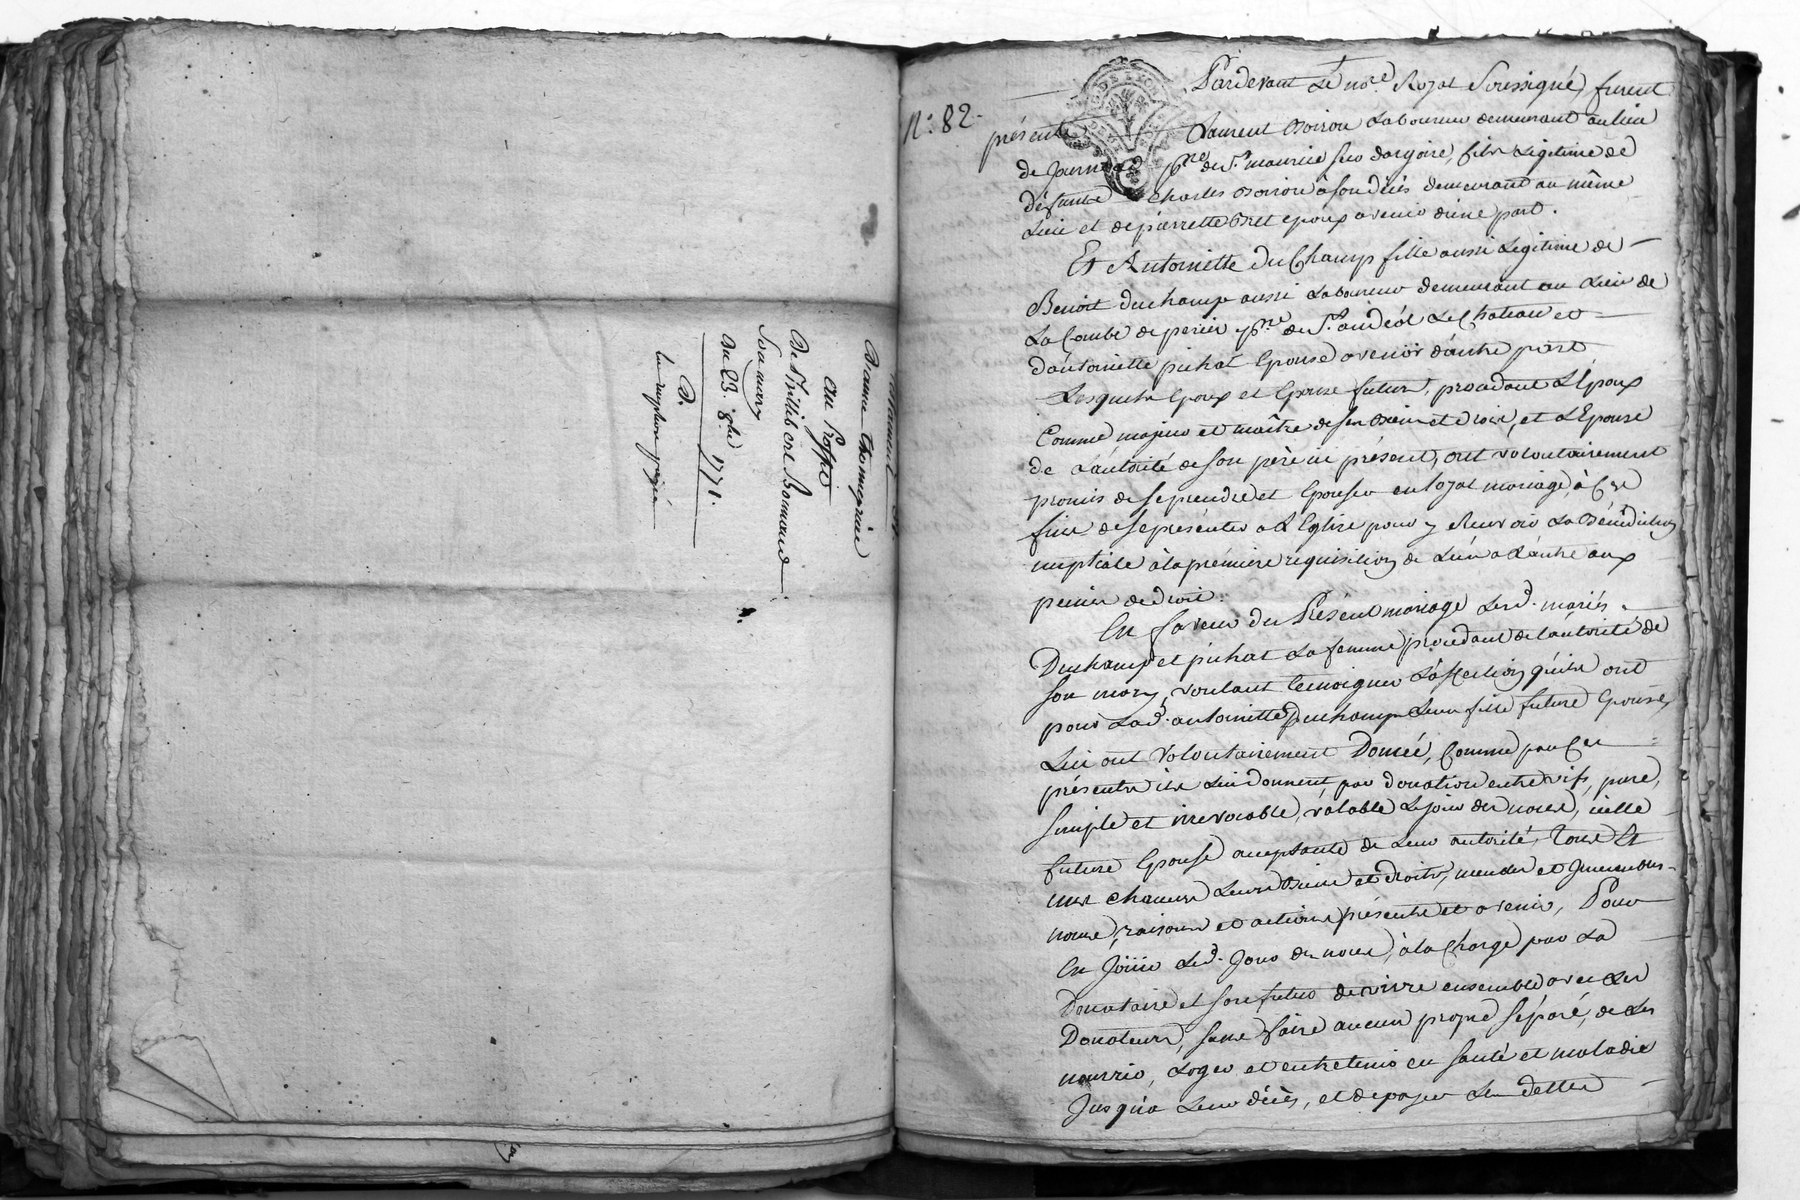 Beance thomazine
au Profit
De Philibert Bonnand
Son mary
Du 23. 8bre 1771.
N.° 82.
Pardevant Le no.re Royal Soussigné, furent
présents Laurent Boiron Laboureur demeurant au lieu
de p.sse de S.t maurice sur dargoire, fils Légitime de
Défunt Charles Boiron à son décès demeurant au même
Lieu et de pierrette Bret epoux avenir d'une part.
Et Antoinette Du Champ fille aussi Légitime de
Benoit duchamp aussi Laboureur demeurant au Lieu de
La Combe de perier p.sse de S.t andéol Le Chateau et
d'antoinette pichat Epouse avenir d'autre part
Lesquels Epoux et Epouse futurs, procédant L'Epoux
Comme majeur et maître de ses Biens et Droits, et L'Epouse
de L'autorité de son père ici présent, ont volontairement
promis de se prendre et Epouser en loyal mariage, à Ces
fins de se présenter a L'Eglise pour y Recevoir La Bénédiction
nuptiale à la première réquisition de L'un a L'autre aux
peines de droit.
En faveur du Présent mariage Lesd. mariés
Duchamp et pichat La femme procédant de L'autorité de
son mary, voulant temoigner L'affection qu'ils ont
pour Lad. antoinette Duchamp Leur fille future Epouse,
Lui ont volontairement Donné, Comme par Ces
présentes ils Lui donnent par donation entre vifs, pure,
simple et irrevocable, valable Le jour des noces, icelle
future Epouse acceptante de Leur autorité, Tous Et
uns chacuns Leurs Biens et droits, meubles et Immeubles,
noms, raisons et actions présents et avenir, Pour
En Jouir Led. Jour des noces, à la Charge par La
Donataire et son futur de vivre ensemble avec Les
Donateurs, sans faire aucun propre séparé, de Les
nourrir, Loger et entretenir en santé et maladie
Jusqu'a Leur décès, et de payer Les dettes